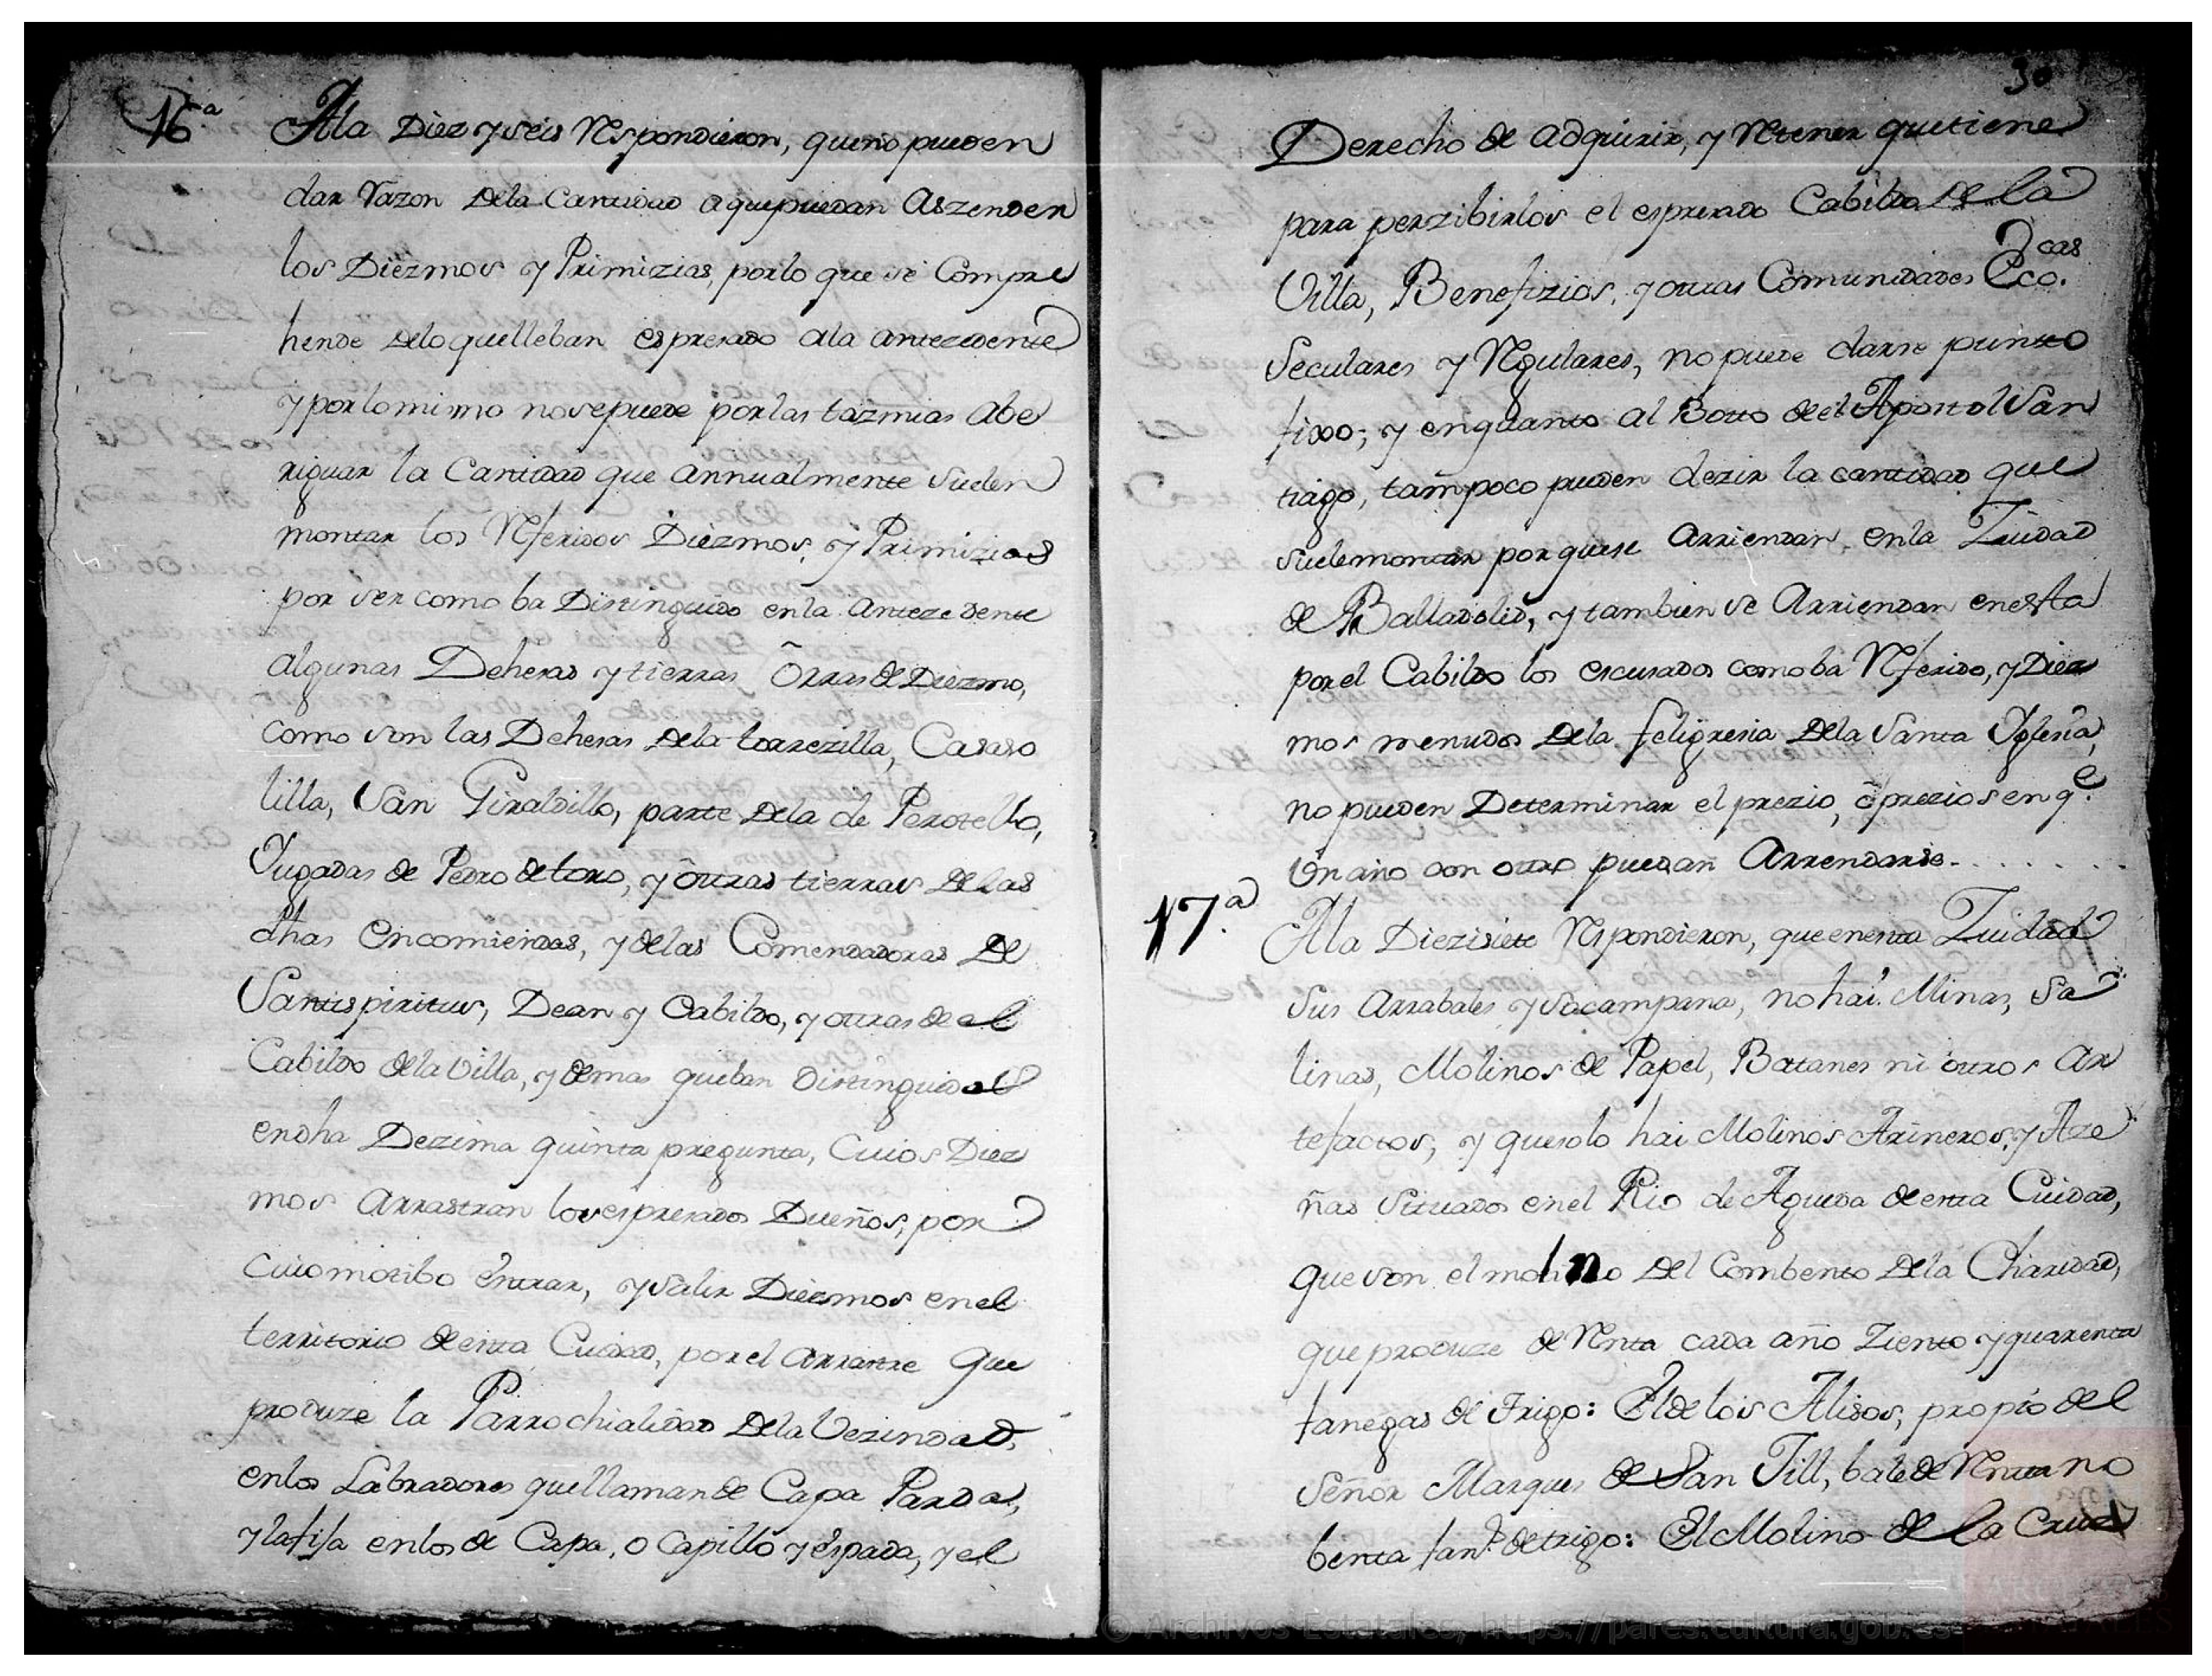 16.a
Ala Diez y seis Respondieron, queno pueden
dar Razon dela Cantidad aquepuedan Aszender
los Diezmos y Primizias, porlo que se Compre
hende delo quelleban espresado ala antezedente
y porlomismo nosepuede porlas tazmias Abe
riguar la Cantidad que annualmente suelen
montar los Referidos Diezmos, y Primizias
por ser como ba Distinguido enla Antezedente
algunas Dehesas y tierras Orras de Diezmo,
como son las Dehesas dela torrezilla, Casaso
lilla, San Giraldillo, parte dela de Perotello,
Yugadas de Pedro de toro, y otras tierras de las
dhas Encomiendas, y delas Comendadoras de
Santispiritus, Dean y Cabildo, y otras de el
Cabildo dela Villa, y demas queban Distinguidas
endha Dezima quinta pregunta, Cuios Diez
mos Arrastran los espresados Dueños, por
cuiomotibo entrar, y salir Diezmos enel
territorio de esta Ciudad, porel Arrastre que
produze la Parrochialidad dela Vezindad,
enlos Labradores quellaman de Capa Parda,
y lafija enlos de Capa, o Capillo y espada, y el
30
Derecho de adquirir, y Retener quetiene
para perzibirlos el espresado Cabildo de la
Villa, Benefizios, y otras Comunidades Eccas.
Seculares y Regulares, no puede darse punto
fixo; y enquanto al Boto de el Apostol San
tiago, tampoco pueden dezir la cantidad que
suelemontar porquese Arriendan enla Ziudad
de Balladolid, y tambien se Arriendan enesta
porel Cabildo los escusados comoba Referido, y Diez
mos menudos dela feligresia dela Santa Yglesia,
no pueden Determinar el prezio, o prezios en q.e
Un año con otro puedan Arrendarse - . . . . . . .
17.a
Ala Diezisiete Respondieron, queenesta Ziudad
sus Arrabales y socampana, no hai Minas, Sa
linas, Molinos de Papel, Batanes ni otros Ar
tefactos; y quesolo hai Molinos Arineros, y Aze
ñas situados enel Rio de Agueda de esta Ciudad,
que son el molino del Combento dela Charidad,
que produze de Renta cada año Ziento y quarenta
fanegas de trigo: El de los Alisos, propio del
Señor Marques de San Gill, bale de Renta no
benta fans. de trigo: El Molino de la Cruz
© Archivos Estatales, https://pares.cultura.gob.es